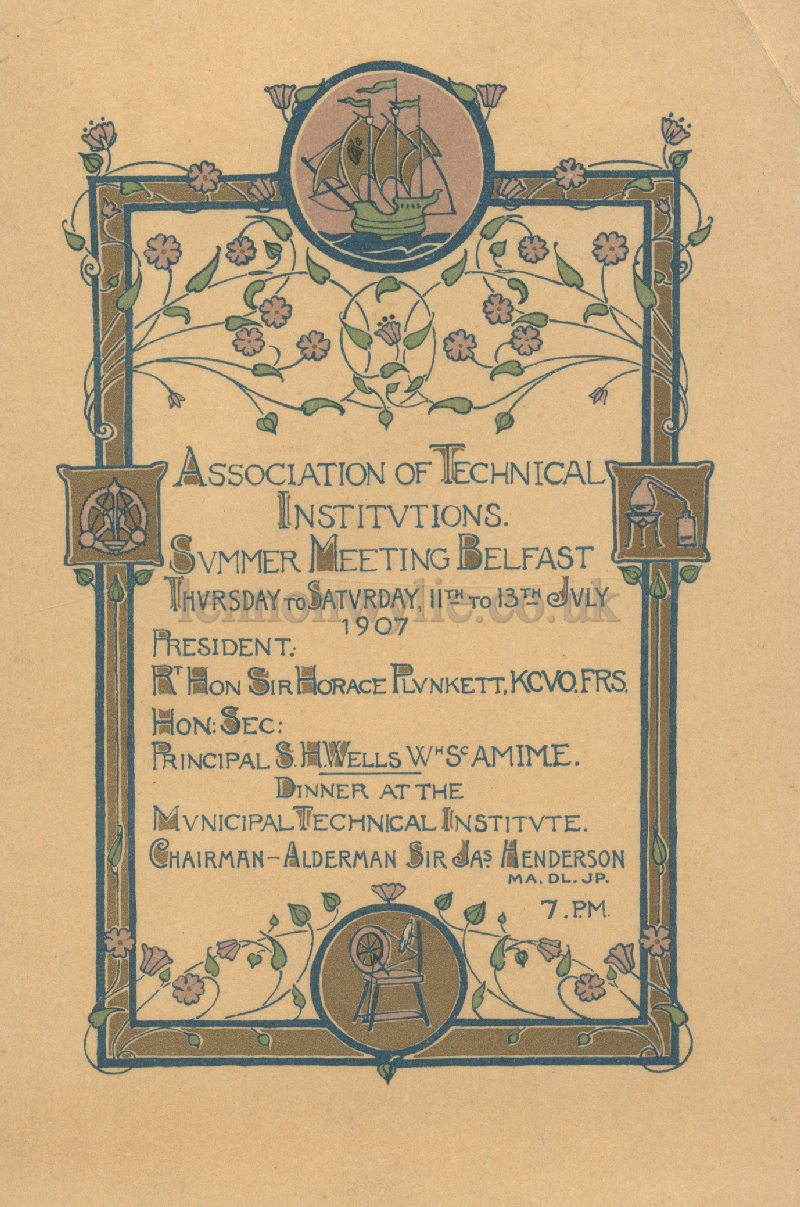 ASSOCIATION OF TECHNICAL
INSTITVTIONS.
SVMMER MEETING BELFAST
THVRSDAY TO SATVRDAY, 11TH TO 13TH JVLY
lennonwylie.co.uk
1907
PRESIDENT:
RT HON SIR HORACE PLVNKETT, KCVO. FRS.
HON: SEC:
PRINCIPAL S. H. WELLS WH SC AMIME.
DINNER AT THE
MVNICIPAL TECHNICAL INSTITVTE.
CHAIRMAN-ALDERMAN SIR JAS. HENDERSON
MA. DL. JP.
7.PM.